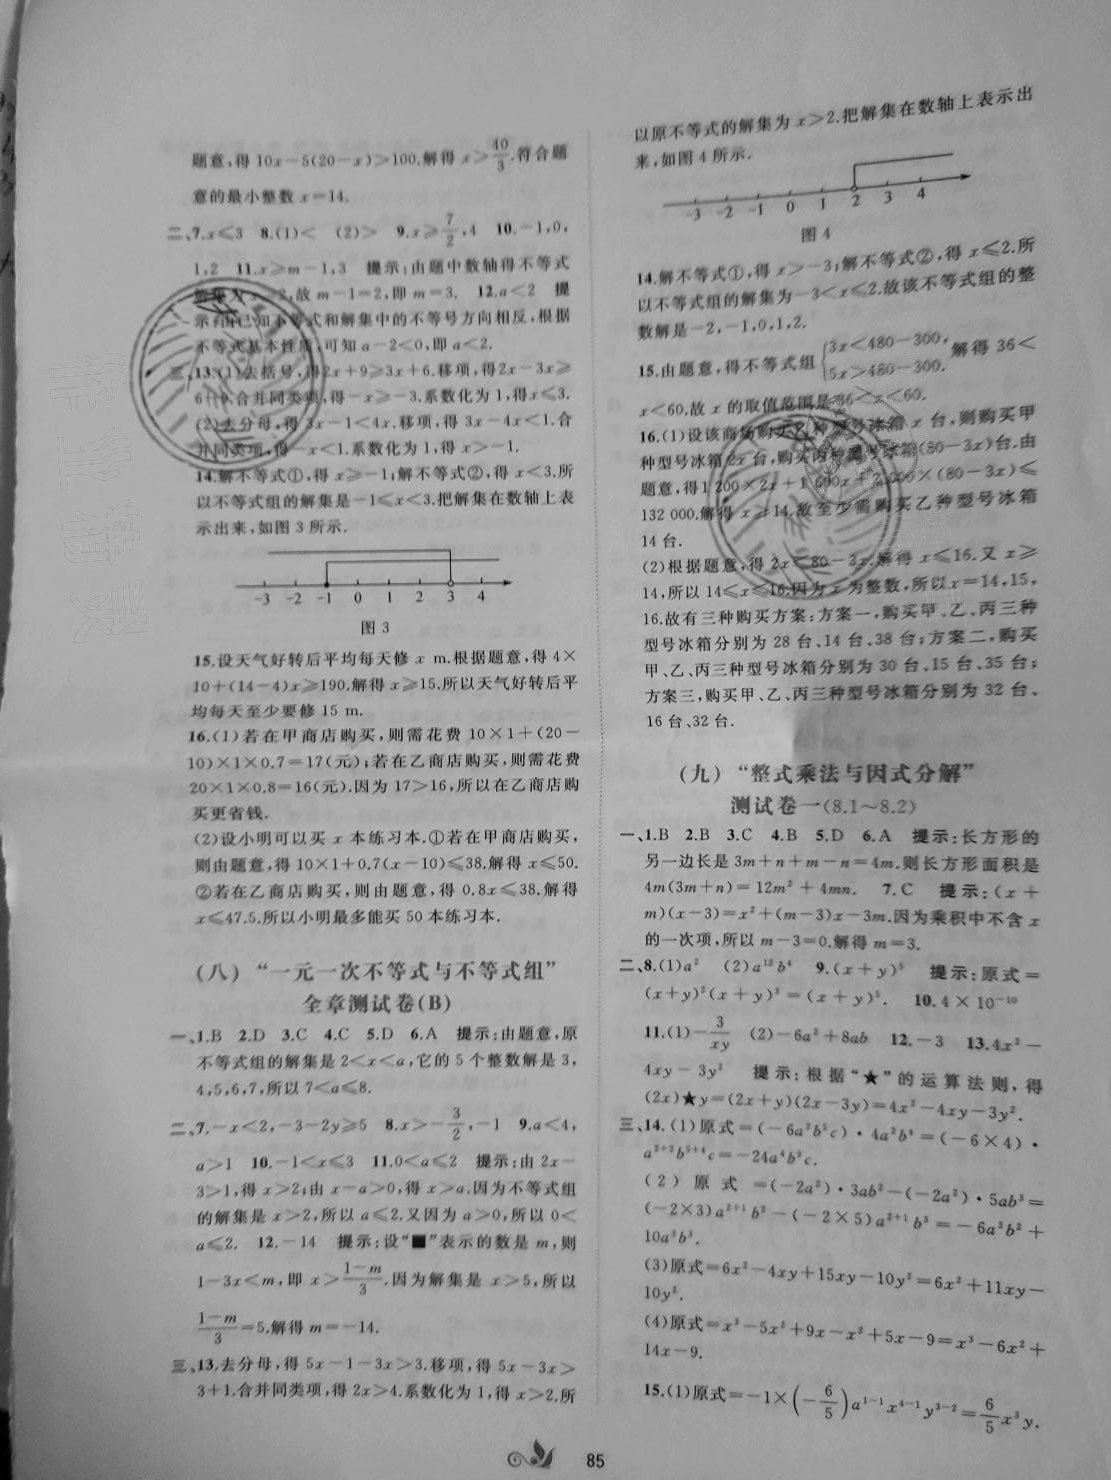 题意,得 10x-5(20-x)>100.解得 x>40/3.符合题
意的最小整数 x=14.
二、7.x≤3 8.(1)< (2)> 9.x≥7/2,4 10.-1,0,
1,2 11.x≥m-1,3 提示:由题中数轴得不等式
解集为 x≥2,故 m-1=2,即 m=3. 12.a<2 提
示:由已知不等式和解集中的不等号方向相反,根据
不等式基本性质,可知 a-2<0,即 a<2.
三、13.(1)去括号,得2x+9≥3x+6.移项,得2x-3x≥
6-9.合并同类项,得-x≥-3.系数化为 1,得x≤3.
(2)去分母,得 3x-1<4x.移项,得 3x-4x<1.合
并同类项,得-x<1.系数化为 1,得 x>-1.
14.解不等式①,得 x≥-1;解不等式②,得 x<3.所
以不等式组的解集是-1≤x<3.把解集在数轴上表
示出来,如图 3 所示.
-3 -2 -1 0 1 2 3 4
图 3
15.设天气好转后平均每天修 x m.根据题意,得 4×
10+(14-4)x≥190.解得 x≥15.所以天气好转后平
均每天至少要修 15 m.
16.(1)若在甲商店购买,则需花费 10×1+(20-
10)×1×0.7=17(元);若在乙商店购买,则需花费
20×1×0.8=16(元).因为 17>16,所以在乙商店购
买更省钱.
(2)设小明可以买 x 本练习本.①若在甲商店购买,
则由题意,得 10×1+0.7(x-10)≤38.解得 x≤50.
②若在乙商店购买,则由题意,得 0.8x≤38.解得
x≤47.5.所以小明最多能买 50 本练习本.
(八) “一元一次不等式与不等式组”
全章测试卷(B)
一、1.B 2.D 3.C 4.C 5.D 6.A 提示:由题意,原
不等式组的解集是 2<x<a,它的 5 个整数解是 3,
4,5,6,7,所以 7<a≤8.
二、7.-x<2,-3-2y≥5 8.x>-3/2,-1 9.a<4,
a>1 10.-1<x≤3 11.0<a≤2 提示:由 2x-
3>1,得 x>2;由 x-a>0,得 x>a.因为不等式组
的解集是 x>2,所以 a≤2.又因为 a>0,所以 0<
a≤2. 12.-14 提示:设“■”表示的数是 m,则
1-3x<m,即 x>(1-m)/3.因为解集是 x>5,所以
(1-m)/3=5.解得 m=-14.
三、13.去分母,得 5x-1-3x>3.移项,得 5x-3x>
3+1.合并同类项,得 2x>4.系数化为 1,得 x>2.所
以原不等式的解集为 x>2.把解集在数轴上表示出
来,如图 4 所示.
-3 -2 -1 0 1 2 3 4
图 4
14.解不等式①,得 x>-3;解不等式②,得 x≤2.所
以不等式组的解集为-3<x≤2.故该不等式组的整
数解是-2,-1,0,1,2.
15.由题意,得不等式组{3x<480-300, 5x>480-300. 解得 36<
x<60.故 x 的取值范围是 36<x<60.
16.(1)设该商场购买乙种型号冰箱 x 台,则购买甲
种型号冰箱 2x 台,购买丙种型号冰箱(80-3x)台.由
题意,得1 200×2x+1 600x+2 000×(80-3x)≤
132 000.解得 x≥14.故至少需购买乙种型号冰箱
14 台.
(2)根据题意,得 2x≤80-3x.解得 x≤16.又 x≥
14,所以 14≤x≤16.因为 x 为整数,所以 x=14,15,
16.故有三种购买方案:方案一,购买甲、乙、丙三种
型号冰箱分别为 28 台、14 台、38 台;方案二,购买
甲、乙、丙三种型号冰箱分别为 30 台、15 台、35 台;
方案三,购买甲、乙、丙三种型号冰箱分别为 32 台、
16 台、32 台.
(九) “整式乘法与因式分解”
测试卷一(8.1~8.2)
一、1.B 2.B 3.C 4.B 5.D 6.A 提示:长方形的
另一边长是 3m+n+m-n=4m.则长方形面积是
4m(3m+n)=12m²+4mn. 7.C 提示:(x+
m)(x-3)=x²+(m-3)x-3m.因为乘积中不含 x
的一次项,所以 m-3=0.解得 m=3.
二、8.(1)a² (2)a¹²b⁴ 9.(x+y)⁵ 提示:原式=
(x+y)²(x+y)³=(x+y)⁵. 10.4×10⁻¹⁰
11.(1)-3/xy (2)-6a²+8ab 12.-3 13.4x²-
4xy-3y² 提示:根据“★”的运算法则,得
(2x)★y=(2x+y)(2x-3y)=4x²-4xy-3y².
三、14.(1)原式=(-6a²b⁵c)·4a²b⁴=(-6×4)·
a²⁺²b⁵⁺⁴c=-24a⁴b⁹c.
(2)原式=(-2a²)·3ab²-(-2a²)·5ab³=
(-2×3)a²⁺¹b²-(-2×5)a²⁺¹b³=-6a³b²+
10a³b³.
(3)原式=6x²-4xy+15xy-10y²=6x²+11xy-
10y².
(4)原式=x³-5x²+9x-x²+5x-9=x³-6x²+
14x-9.
15.(1)原式=-1×(-6/5)a¹⁻¹x⁴⁻¹y³⁻²=6/5x³y.
85